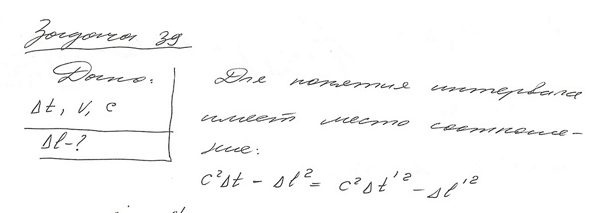 Задача 39
Дано:
Δt, V, c
Δl-?
Для понятия интервала
имеет место соотноше-
ние:
c²Δt - Δl² = c²Δt'² - Δl'²